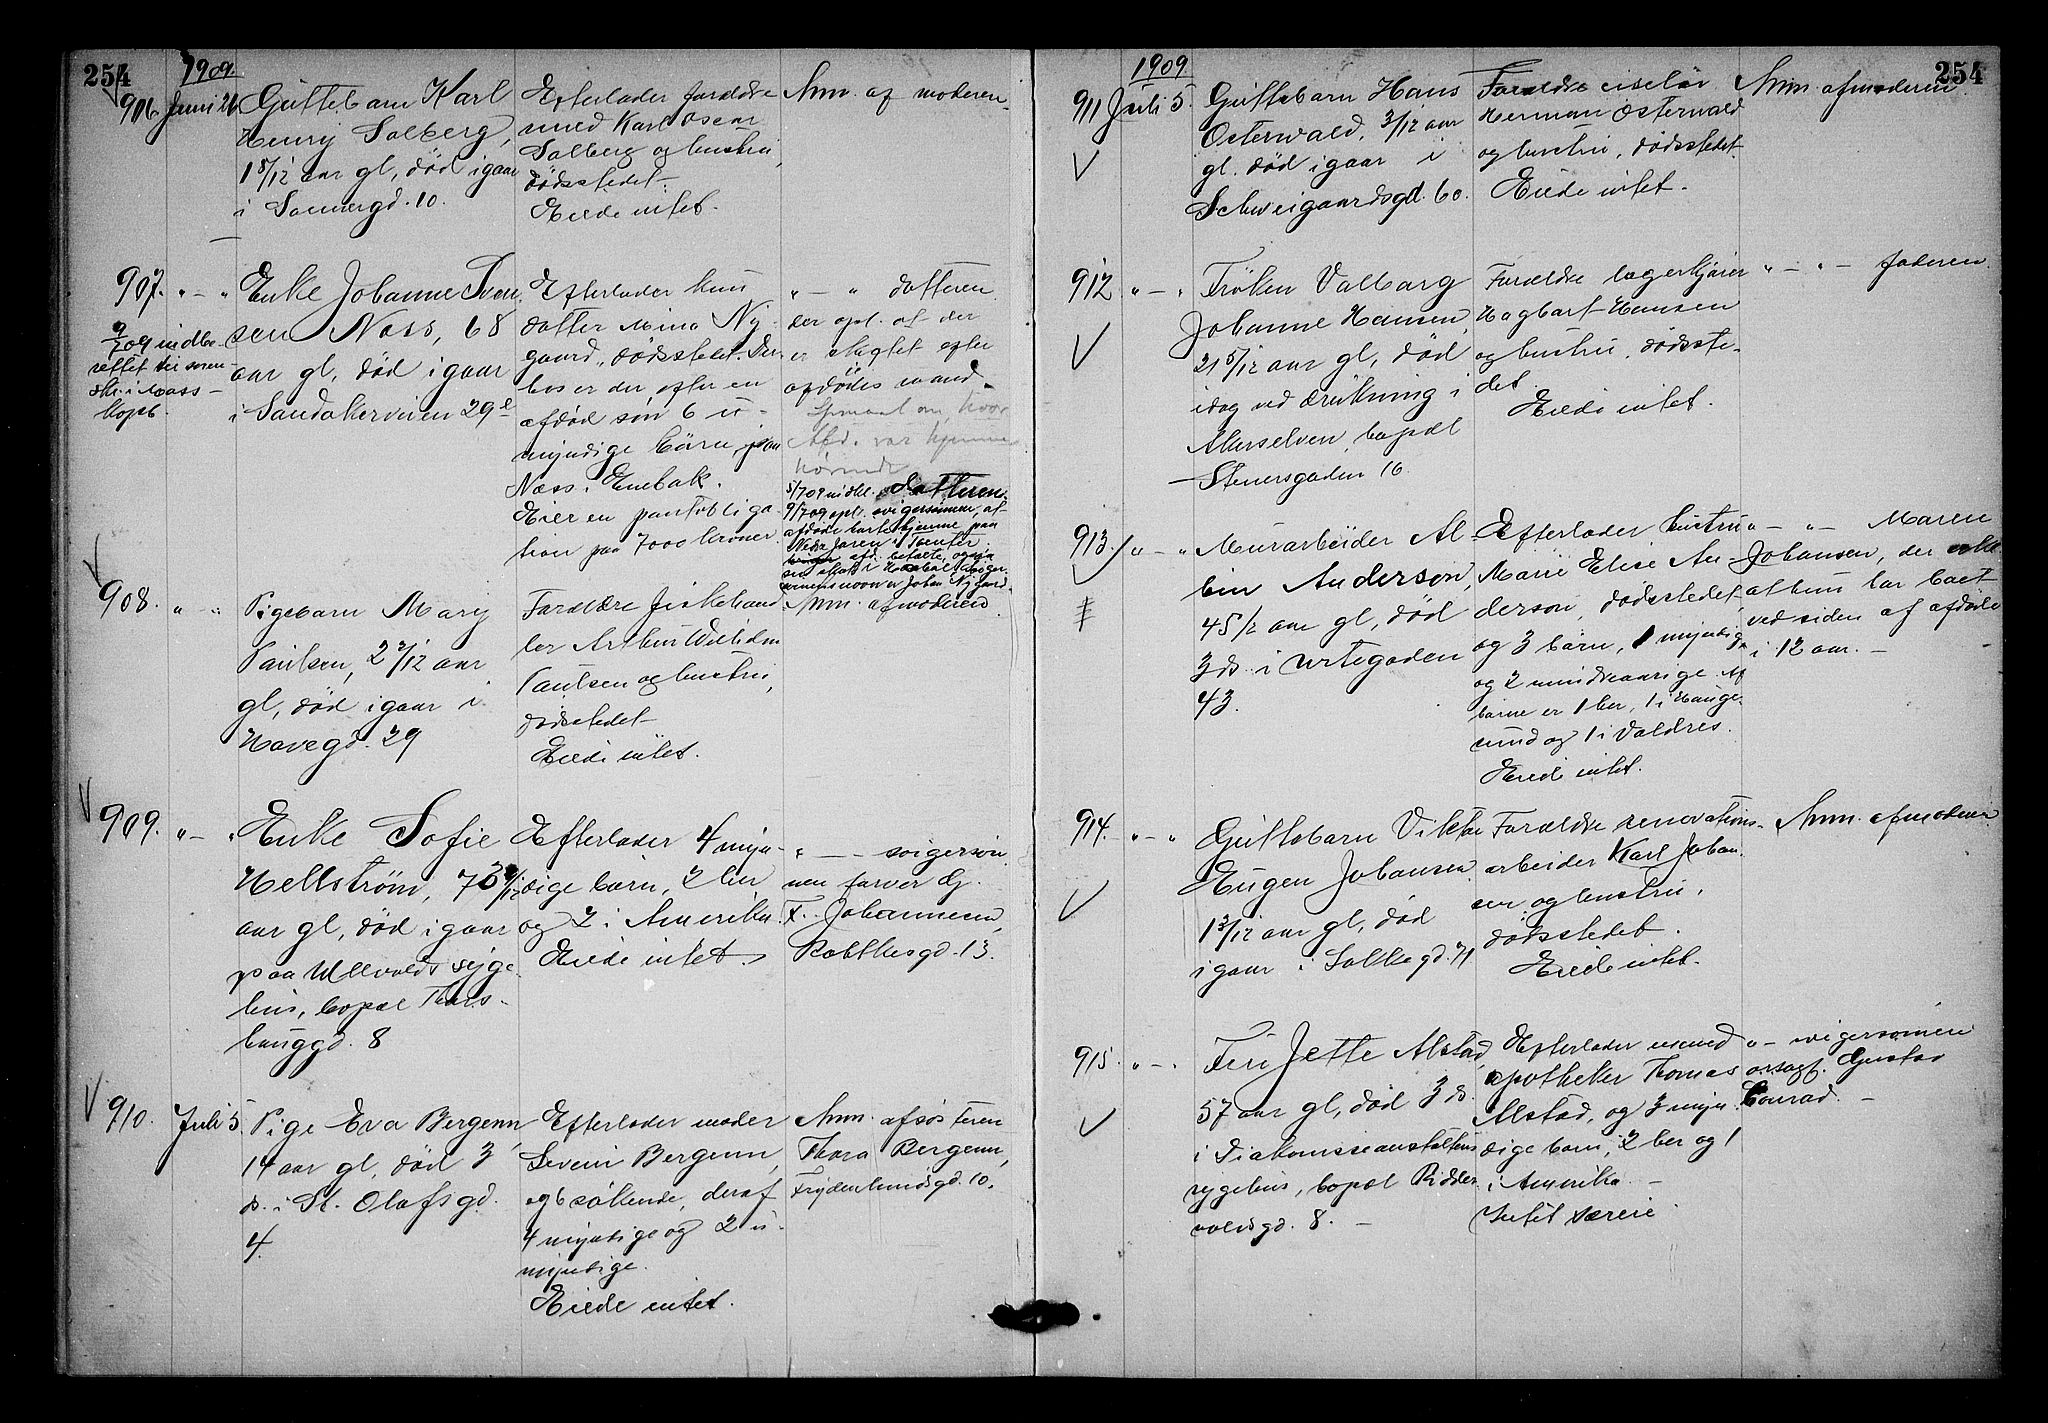 254
1909.
906. Juni 26
Guttebarn Karl
Henry Solberg,
1 8/12 aar gl, død igaar
i Sannergd. 10.
Efterlader forældre
Karl Oscar
Solberg og hustru,
dødsstedet.
Eiede intet.
Anm. af moderen.
907. " — "
indbe-
rettet til soren-
skr. i
Enke Johanne Iven
sen Næss, 68
aar gl, død igaar
i Sandakerveien 29
Efterlader kun
datter Mina Ny-
gaard, dødsstedet. Des-
der efter en
afdød søn 6 u-
myndige børn, paa
Næss i Enebak.
Eier en pantobliga-
tion paa 7000 kroner
" — " datteren
der opl. at der
er skiftet efter
afdødes mand.
Spurt om hvor
Afd. var hjemme
hørende
5/7 09 datteren.
9/7 09 opl. svigersønnen, at
afdøde hjemme paa
Johan Nygaard.
908. " — "
Pigebarn Mary
Paulsen, 2 2/12 aar
gl, død igaar i
Havegd. 29
Forældre fiskehand
ler Arthur Wilhelm
Paulsen og hustru,
dødsstedet
Eiede intet.
Anm. af moderen.
909. " — "
Enke Sofie
Hellstrøm, 73
aar gl, død igaar
paa Ullevolds syge
hus, bopæl Thors-
hauggd. 8
Efterlader 4 myn-
dige børn, 2 her
og 2 i Amerika.
Eiede intet.
" — — svigersøn
nen farver
F. Johannesen,
Rathkesgd. 13.
910. Juli 5.
Pige Eva Bergenn,
14 aar gl, død 3
ds. i St. Olafsgd.
4.
Efterlader moder
Severin Bergenn,
og 6 søskende, deraf
4 myndige og 2 u-
myndige.
Eiede intet.
Anm. af søsteren
Thora Bergenn,
Frydenlundsgd. 10.
1909
254
911 Juli 5.
Guttebarn Hans
Osterwald, 3/12 aar
gl. død igaar i
Schweigaardsgd. 60.
Forældre ciselør
Herman Osterwald
og hustru, dødsstedet.
Eiede intet.
Anm. af moderen.
912 " — "
Frøken Valborg
Johanne Hansen,
21 5/12 aar gl, død
idag ved drukning i
Akerselven, bopæl
Stenersgaden 16.
Forældre lagerkjører
Hagbart Hansen
og hustru, dødsste-
det.
Eiede intet.
" — " — faderen.
913. " — "
Murarbeider Al-
bin Anderson,
45 1/2 aar gl, død
3 ds. i Urtegaden
43.
Efterlader hustru
Marie Elise An-
derson, dødsstedet,
og 3 børn, 1 myndig
og 2 mindreaarige. Af
børne er 1 her, 1 i Hauge-
sund og 1 i Valdres.
Eiede intet.
" — " — Maren
Johansen, der
at hun har boet
ved siden af afdøde
i 12 aar. —
914. " — "
Guttebarn Viktor
Eugen Johansen
1 3/12 aar gl, død
igaar i Sofiesgd. 71
Forældre renovations-
arbeider Karl Johan-
sen og hustru,
dødsstedet.
Eiede intet.
Anm. af moderen
915. " — "
Fru Jette Alstad,
57 aar gl, død 3 ds.
i Diakonisseanstaltens
sygehus, bopæl Ridder-
voldsgd. 8. —
Efterlader emand
apotheker Thomas
Alstad, og 3 myn-
dige barn, 2 her og 1
i Amerika. —
Intet særeie.
" — svigersønnen
Gustav
Conrad. —